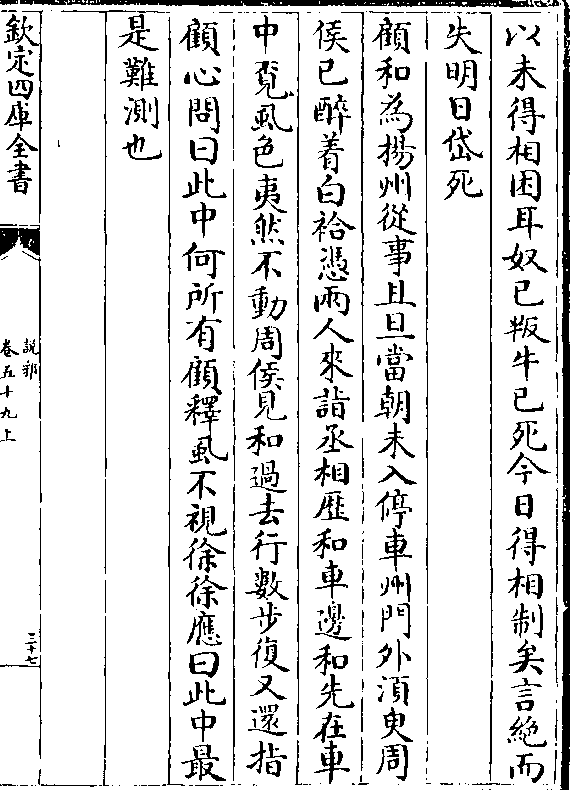 以未得相困耳奴已叛牛已死今日得相制矣言絶而
失明日岱死
顧和為揚州從事且旦當朝未入停車州門外湏臾周
侯已醉着白袷憑兩人來詣丞相歴和車邊和先在車
中覔虱色夷然不動周侯見和過去行數步復又還指
顧心問曰此中何所有顧釋虱不視徐徐應曰此中最
是難測也
欽定四庫全書
說郛
卷五十九上
三十七